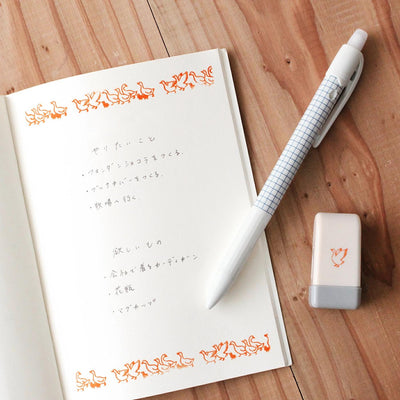 やりたいこと
・フォンダンショコラをつくる。
・ブックカバーをつくる。
・牧場へ行く。
欲しいもの
・会社で着るカーディガン
・花瓶
・マグカップ